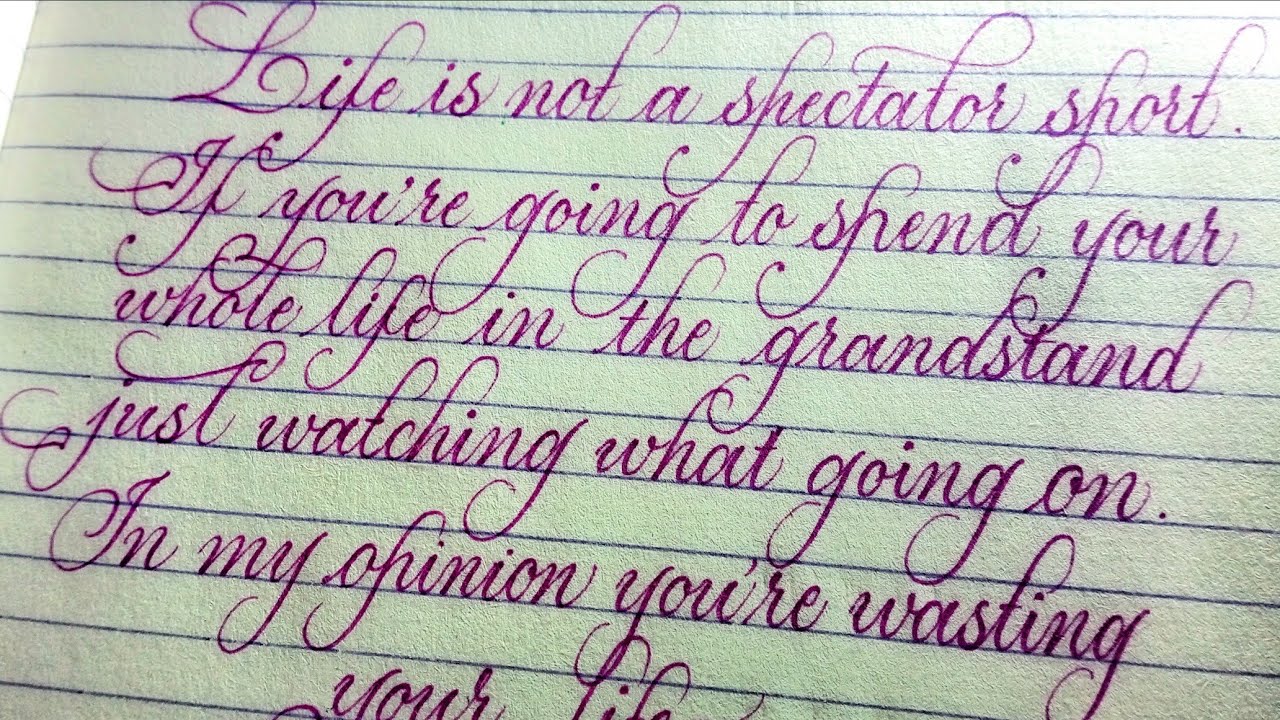 Life is not a spectator sport.
If you're going to spend your
whole life in the grandstand
just watching what going on.
In my opinion you're wasting
your life